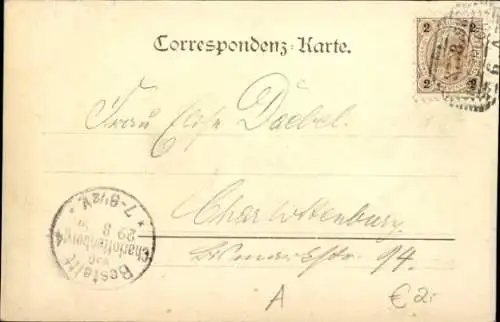 Correspondenz-Karte.
2 2
2 2
Frau Elise Daebel.
Charlottenburg
Bismarckstr. 94.
Bestellt
vom
Charlottenburg 4
29 8
7-8½V.
A
€ 2.-